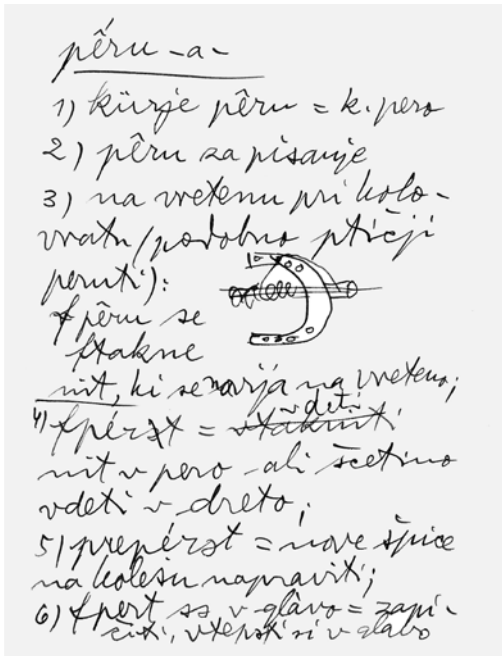 pêru -a-
1) kürje pêru = k. pero
2) pêru za pisanje
3) na vretenu pri kolo-
vratu (podobno ptičji
peruti):
f pêru se
ftakne
nit, ki se navija na vreteno;
4) fpérat = vtakniti vdeti
nit v pero ali ščetino
vdeti v dreto;
5) prepérat = nove špice
na kolesu napraviti;
6) fpert sə v glavo = zapi-
čiti, vtepsti si v glavo